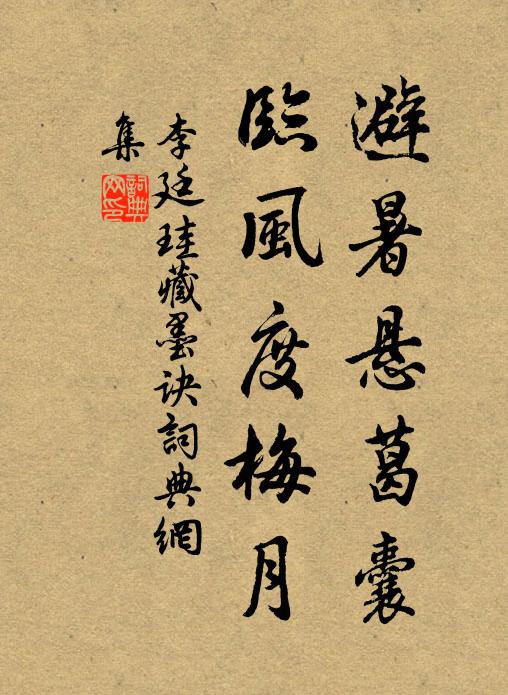 避暑悬葛囊
臨風度梅月
李廷珪藏墨訣詞典網
集
詞典網印